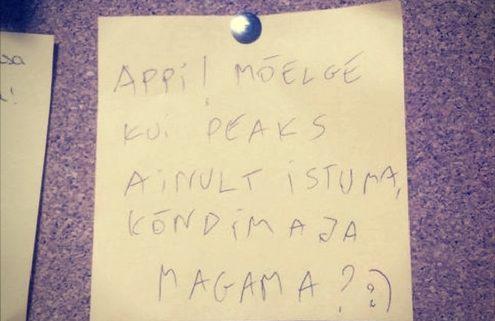 APPI! MÕELGE
KUI PEAKS
AINULT ISTUMA,
KÕNDIMA JA
MAGAMA? :)